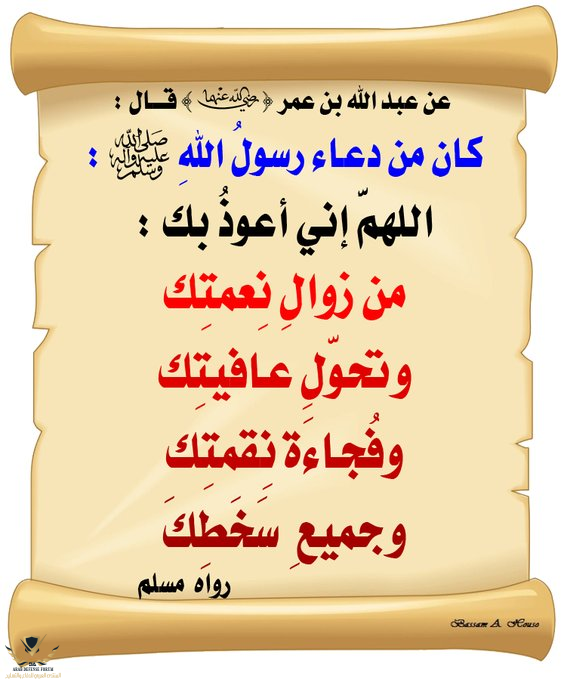 عن عبد الله بن عمر ﴿ رضي الله عنهما ﴾ قــال :
كان من دعاء رسولُ اللهِ صلى الله عليه وآله وسلم :
اللهمّ إني أعوذُ بك :
من زوالِ نِعمتِك
وتحوّلِ عافيتِك
وفُجاءةِ نِقمتِك
وجميعِ سَخَطِكَ
رواه مسلم
Bassam A. Houso
ARAB DEFENSE FORUM